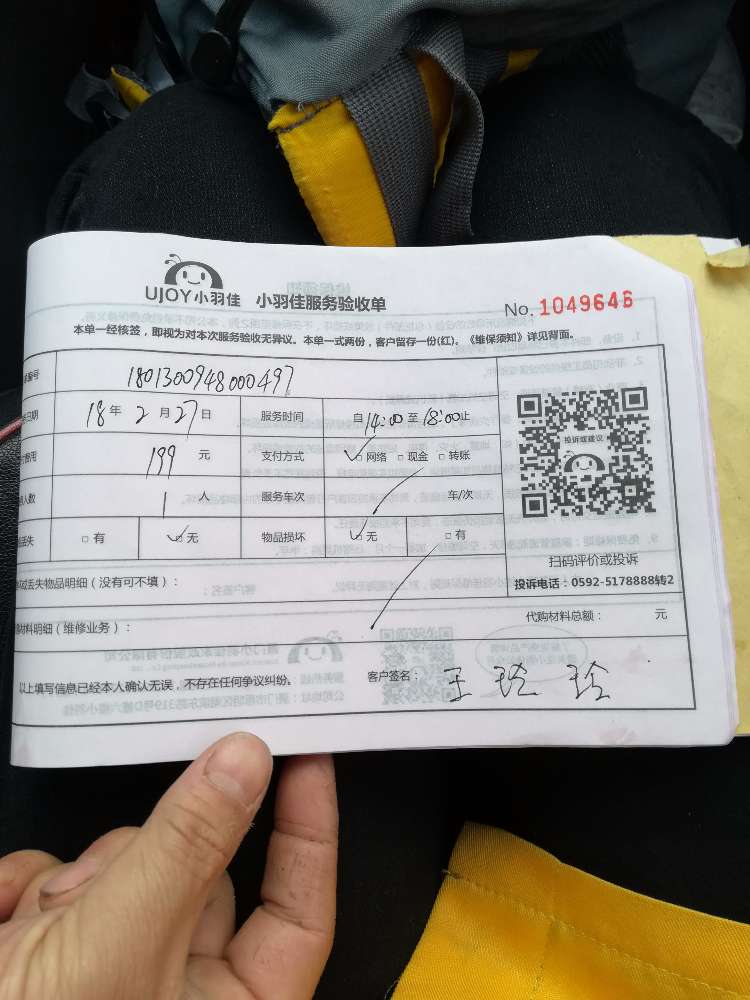 UJOY小羽佳 小羽佳服务验收单 No. 1049646
本单一经核签，即视为对本次服务验收无异议。本单一式两份，客户留存一份(红)。《维保须知》详见背面。
编号 1801300948000497
日期 18年2月27日 服务时间 自14:00至18:00止
费用 199 元 支付方式 ☑网络 □现金 □转账
人数 1 人 服务车次 车/次
丢失 □有 ☑无 物品损坏 ☑无 □有
投诉或建议
扫码评价或投诉
投诉电话：0592-5178888转2
丢失物品明细（没有可不填）：
材料明细（维修业务）： 代购材料总额： 元
以上填写信息已经本人确认无误，不存在任何争议纠纷。 客户签名： 王玲玲